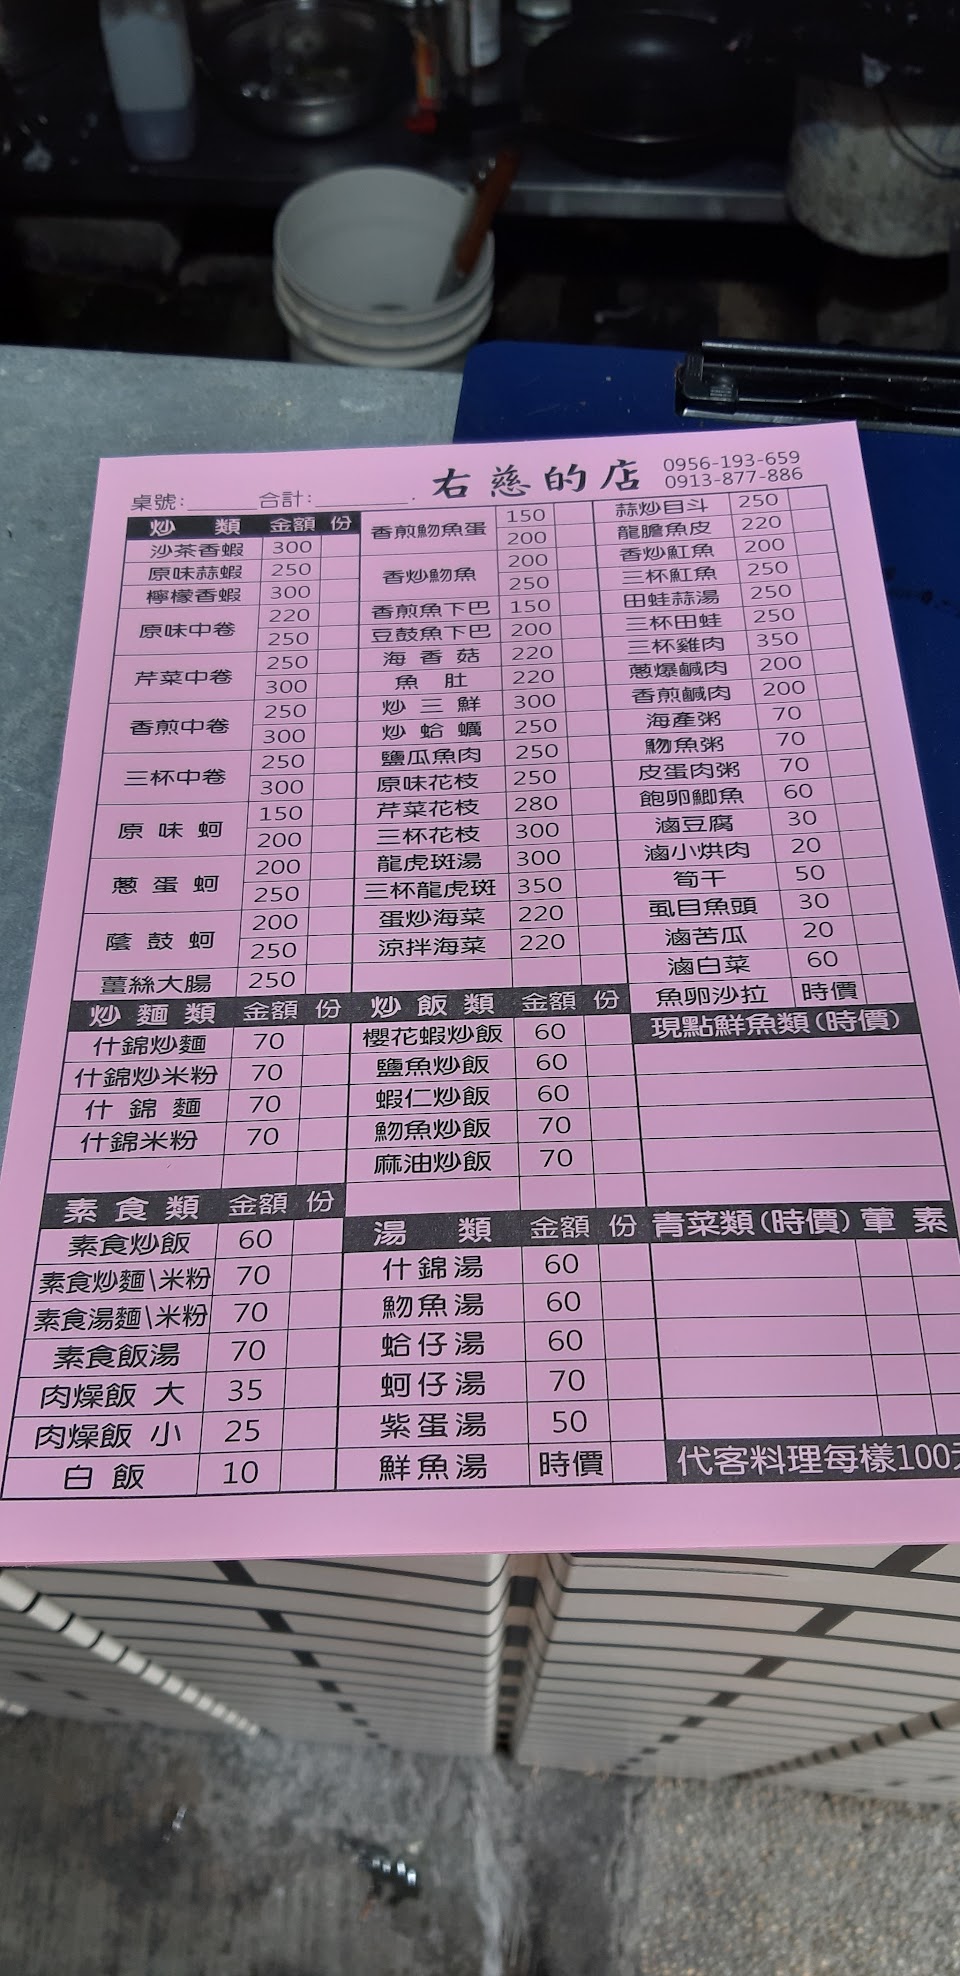 右慈的店
0956-193-659
0913-877-886
桌號: 合計:
炒 類 金額 份
沙茶香蝦 300
原味蒜蝦 250
檸檬香蝦 300
原味中卷 220
250
芹菜中卷 250
300
香煎中卷 250
300
三杯中卷 250
300
原味蚵 150
200
蔥蛋蚵 200
250
蔭鼓蚵 200
250
薑絲大腸 250
香煎魩魚蛋 150
200
香炒魩魚 200
250
香煎魚下巴 150
豆鼓魚下巴 200
海香菇 220
魚肚 220
炒三鮮 300
炒蛤蠣 250
鹽瓜魚肉 250
原味花枝 250
芹菜花枝 280
三杯花枝 300
龍虎斑湯 300
三杯龍虎斑 350
蛋炒海菜 220
涼拌海菜 220
蒜炒目斗 250
龍膽魚皮 220
香炒魟魚 200
三杯魟魚 250
田蛙蒜湯 250
三杯田蛙 250
三杯雞肉 350
蔥爆鹹肉 200
香煎鹹肉 200
海產粥 70
魩魚粥 70
皮蛋肉粥 70
飽卵鯽魚 60
滷豆腐 30
滷小烘肉 20
筍干 50
虱目魚頭 30
滷苦瓜 20
滷白菜 60
魚卵沙拉 時價
炒麵類 金額 份
什錦炒麵 70
什錦炒米粉 70
什錦麵 70
什錦米粉 70
炒飯類 金額 份
櫻花蝦炒飯 60
鹽魚炒飯 60
蝦仁炒飯 60
魩魚炒飯 70
麻油炒飯 70
現點鮮魚類(時價)
素食類 金額 份
素食炒飯 60
素食炒麵\米粉 70
素食湯麵\米粉 70
素食飯湯 70
肉燥飯 大 35
肉燥飯 小 25
白飯 10
湯 類 金額 份
什錦湯 60
魩魚湯 60
蛤仔湯 60
蚵仔湯 70
紫蛋湯 50
鮮魚湯 時價
青菜類(時價) 葷 素
代客料理每樣100元